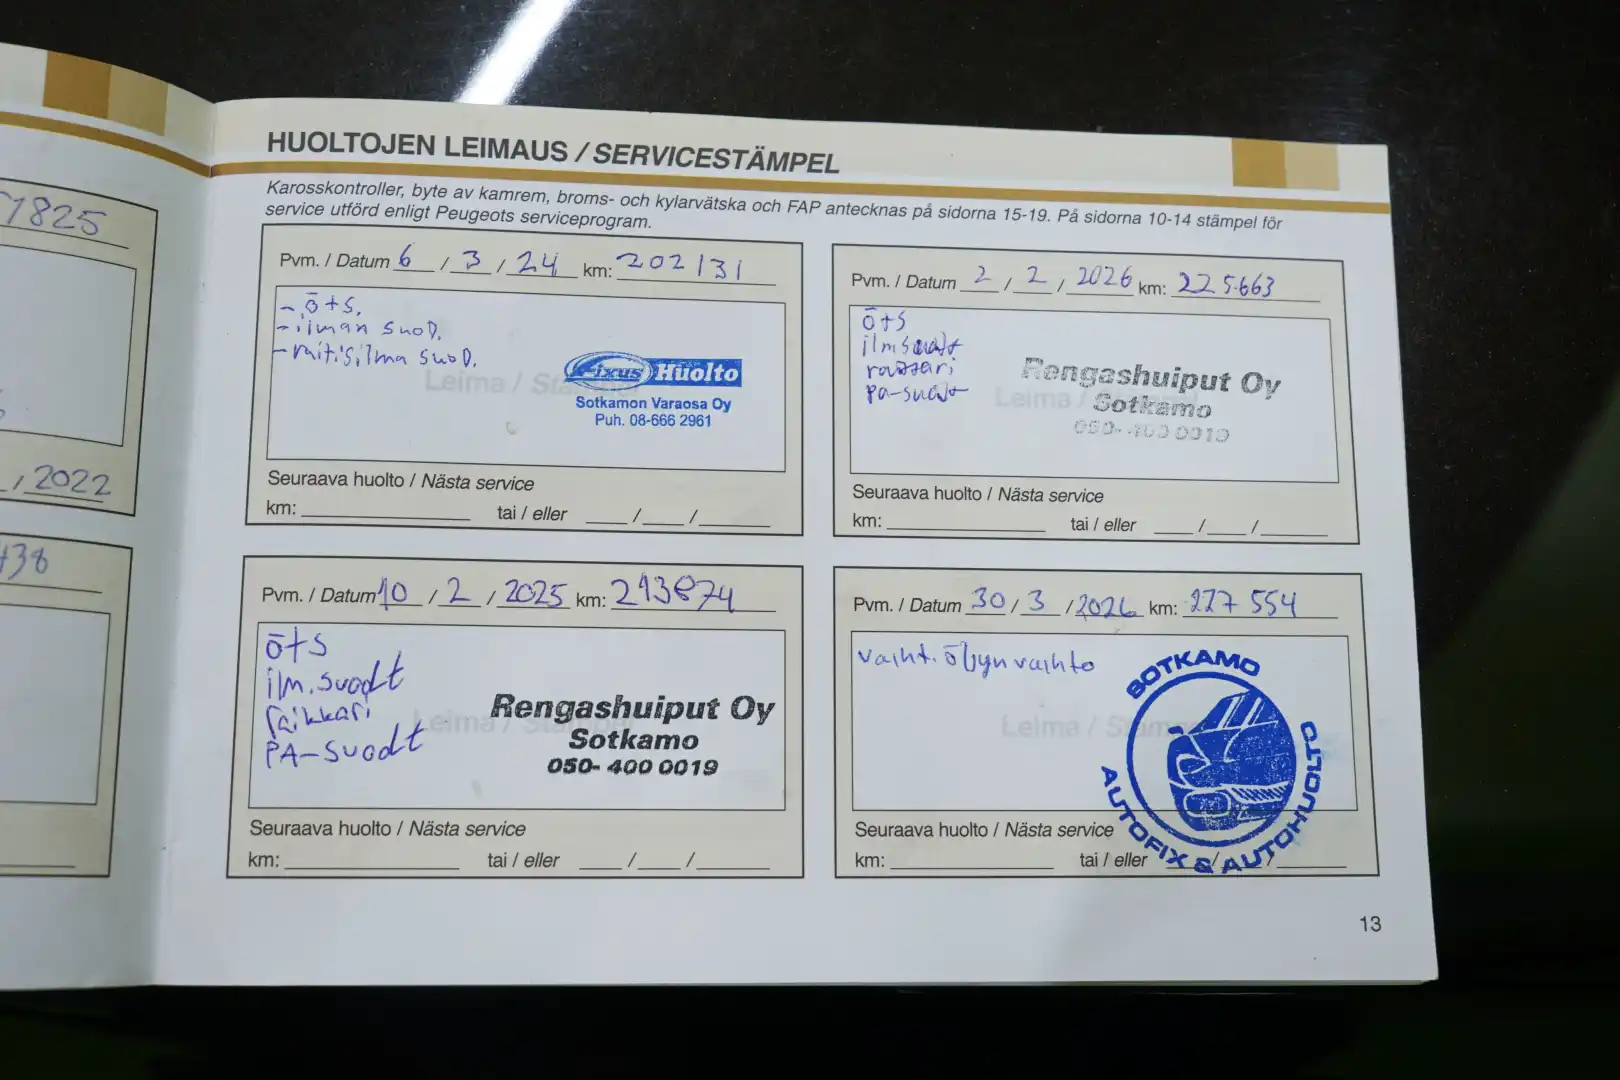 1825
2022
438
HUOLTOJEN LEIMAUS / SERVICESTÄMPEL
Karosskontroller, byte av kamrem, broms- och kylarvätska och FAP antecknas på sidorna 15-19. På sidorna 10-14 stämpel för
service utförd enligt Peugeots serviceprogram.
Pvm. / Datum 6 / 3 / 24 km: 202131
- öts.
- ilman suod.
- raitisilma suod.
Leima / Stämpel
Fixus Huolto
Sotkamon Varaosa Oy
Puh. 08-666 2961
Seuraava huolto / Nästa service
km: tai / eller / /
Pvm. / Datum 10 / 2 / 2025 km: 213874
öts
ilm. suodt
raikkari
PA-suodt
Leima / Stämpel
Rengashuiput Oy
Sotkamo
050- 400 0019
Seuraava huolto / Nästa service
km: tai / eller / /
Pvm. / Datum 2 / 2 / 2026 km: 225.663
öts
ilmsuodt
pa-suodt
Leima /
Rengashuiput Oy
Sotkamo
050- 400 0019
Seuraava huolto / Nästa service
km: tai / eller / /
Pvm. / Datum 30 / 3 / 2026 km: 227 554
vaiht. öljyn vaihto
Leima / Stämpel
SOTKAMO
AUTOFIX & AUTOHUOLTO
Seuraava huolto / Nästa service
km: tai / eller / /
13